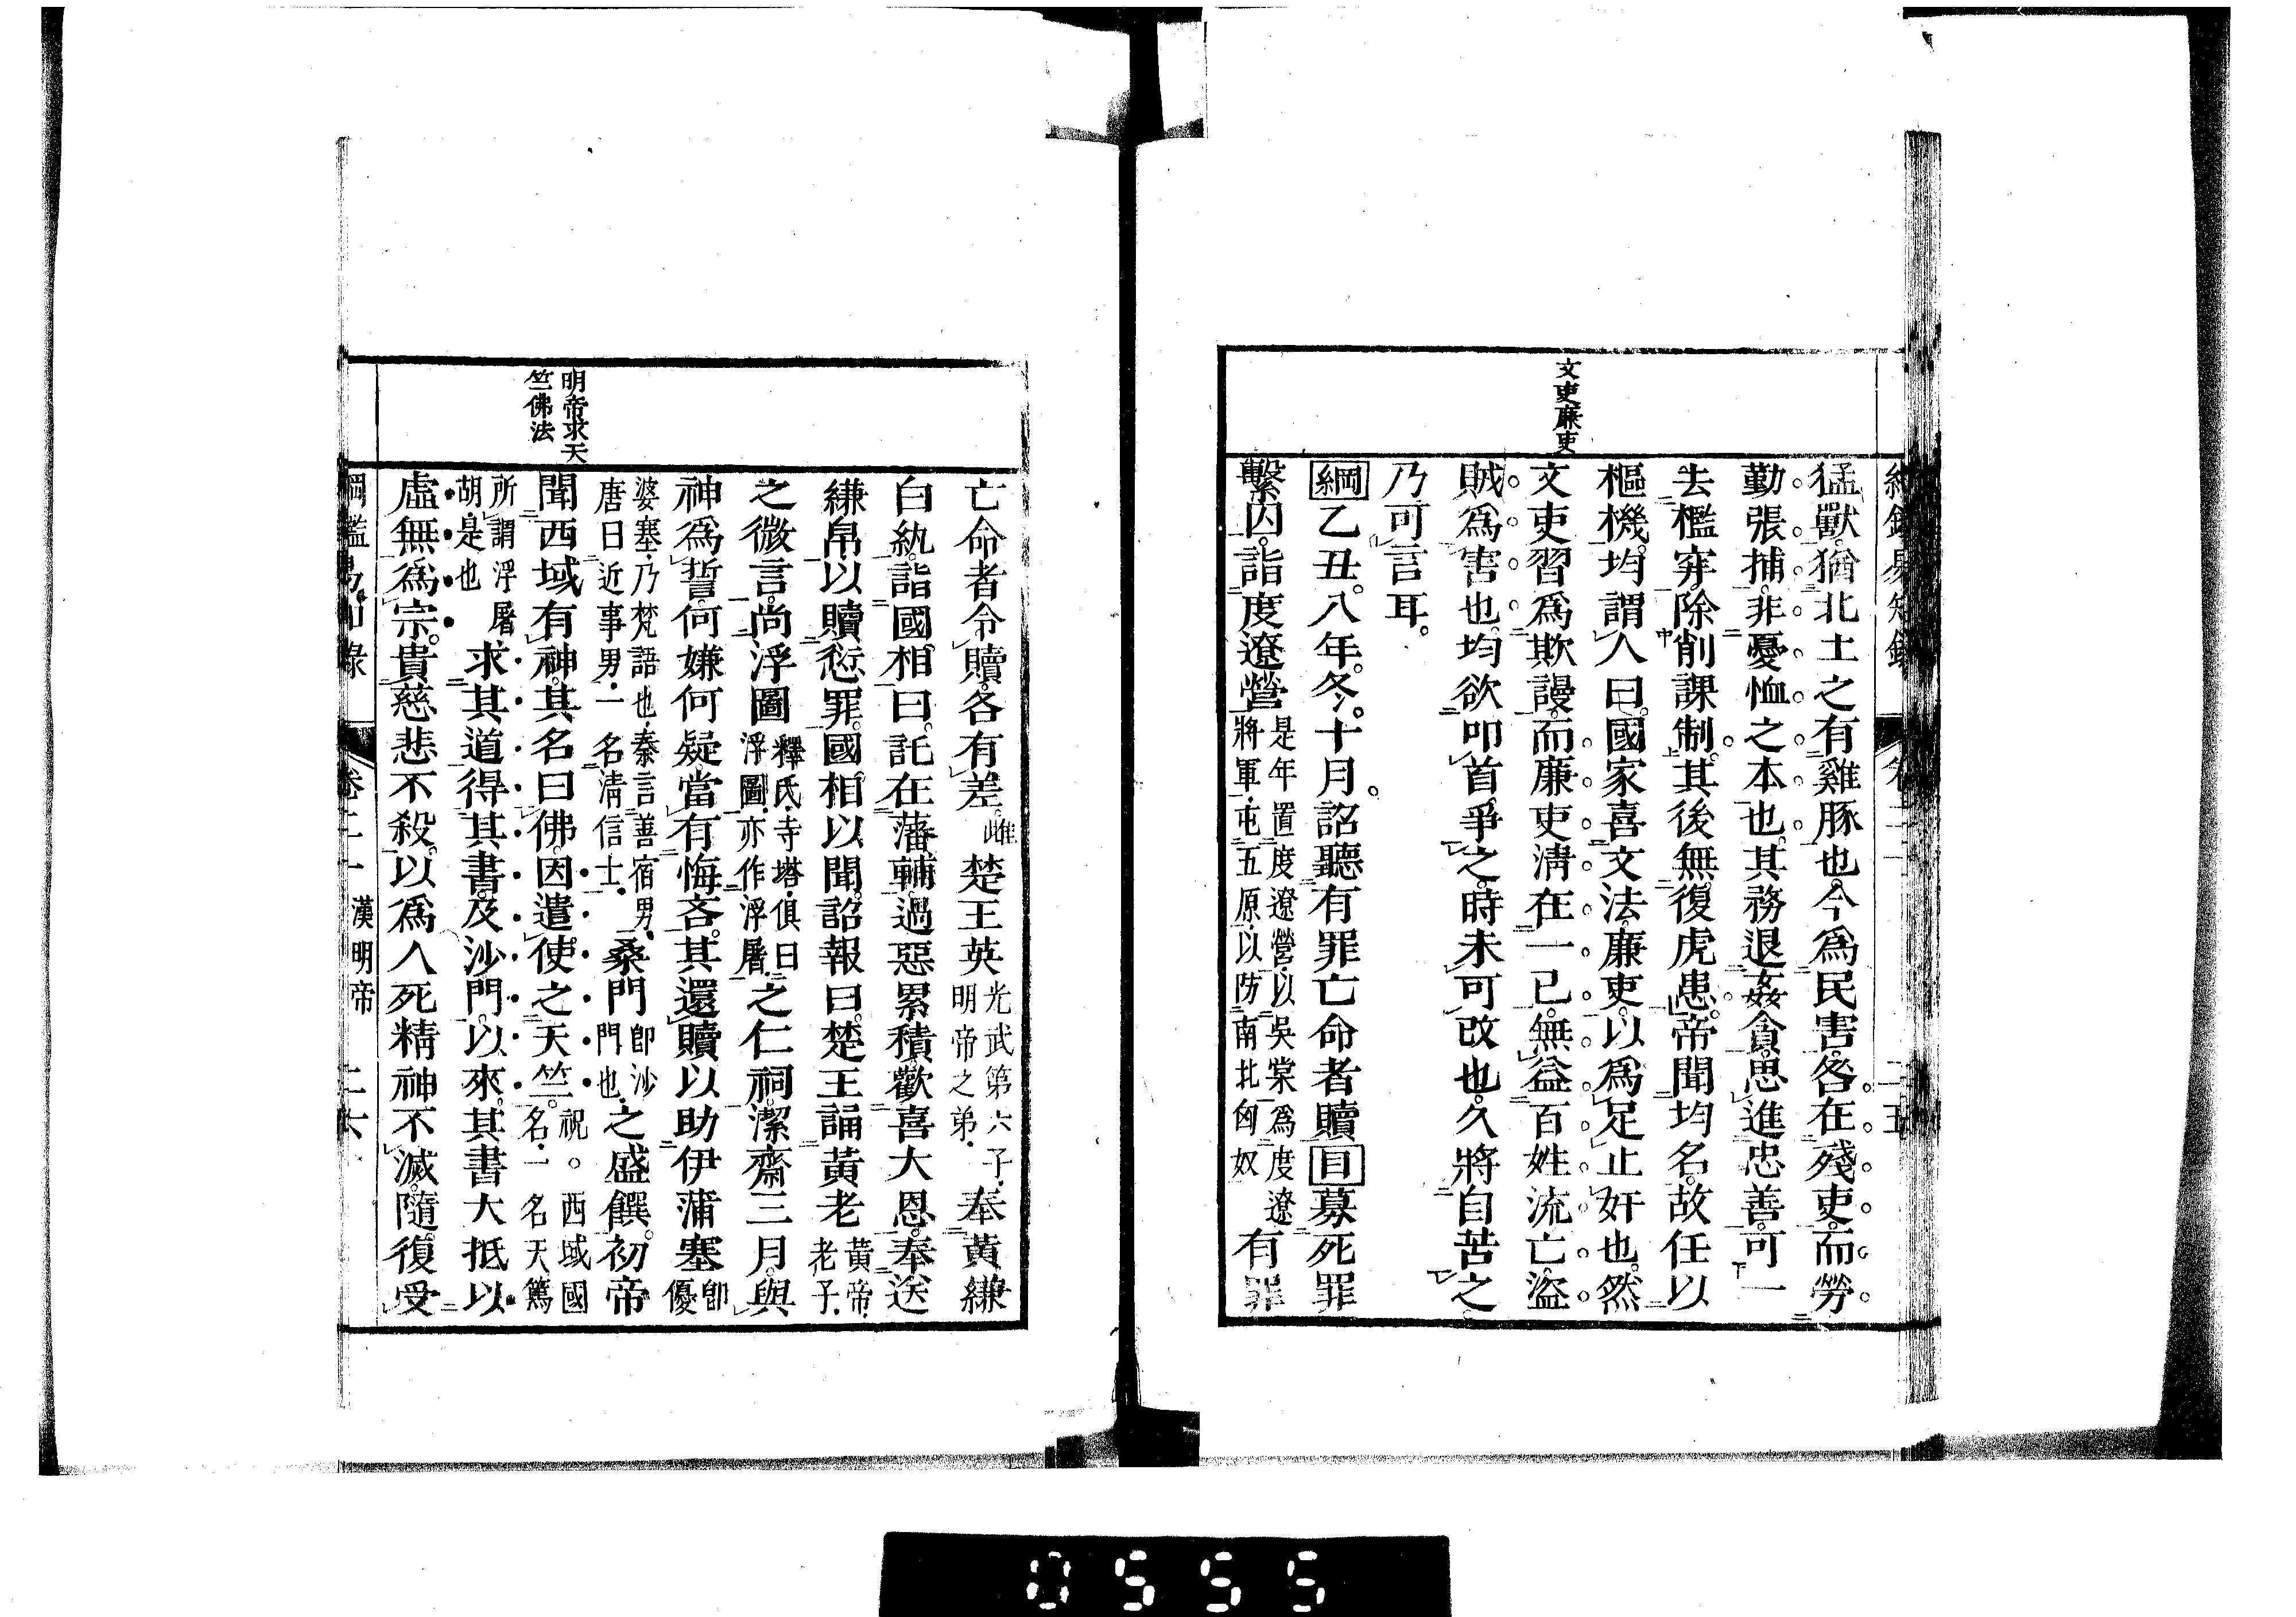 文吏廉吏
猛獸。猶北土之有雞豚也。今爲民害。咎在殘吏。而勞
勤張捕。非憂恤之本也。其務退姦貪。思進忠善。可一
去檻穽。除削課制。其後無復虎患。帝聞均名。故任以
樞機。均謂人曰。國家喜文法。廉吏。以爲足止奸也。然
文吏習爲欺謾。而廉吏淸在一己。無益百姓流亡。盜
賊爲害也。均欲叩首爭之。時未可改也。久將自苦之。
乃可言耳。
綱乙丑。八年。冬。十月。詔聽有罪亡命者贖目募死罪
繫囚。詣度遼營是年置度遼營。以吳棠爲度遼將軍。屯五原。以防南北匈奴有罪
明帝求天
竺佛法
亡命者令贖。各有差。雌楚王英光武第六子。明帝之弟。奉黃縑
白紈。詣國相曰。託在藩輔。過惡累積。歡喜大恩。奉送
縑帛。以贖愆罪。國相以聞。詔報曰。楚王誦黃老黃帝。老子。
之微言。尚浮圖釋氏。寺塔。俱曰浮圖。亦作浮屠。之仁祠。潔齋三月。與
神爲誓。何嫌何疑。當有悔吝。其還贖以助伊蒲塞卽優
婆塞。乃梵語也。秦言善宿男。唐曰近事男。一名淸信士。桑門卽沙門也。之盛饌。初帝
聞西域有神。其名曰佛。因遣使之天竺。祝。西域國名。一名天篤
所謂浮屠胡。是也求其道得其書。及沙門。以來。其書大抵以
虛無爲宗。貴慈悲不殺。以爲人死精神不滅。隨復受
綱鑑易知錄 卷二一 漢明帝 二六
0555